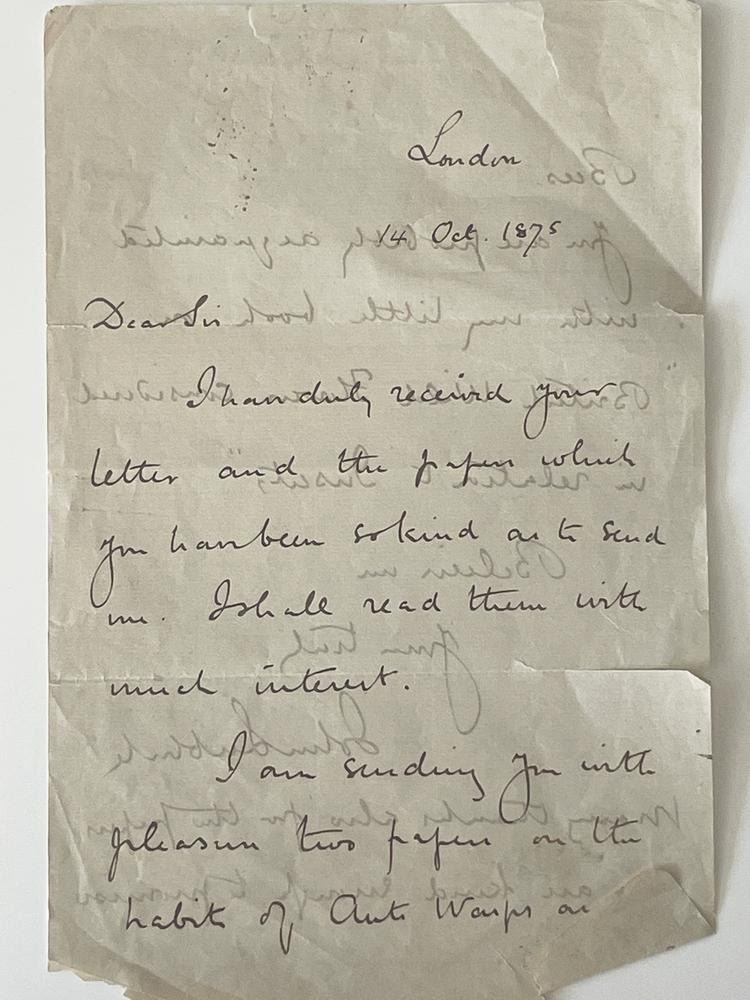 London
14 Oct. 1875
Dear Sir
I have duly received your
letter and the papers which
you have been so kind as to send
me. I shall read them with
much interest.
I am sending you with
pleasure two papers on the
habits of Ants Wasps and